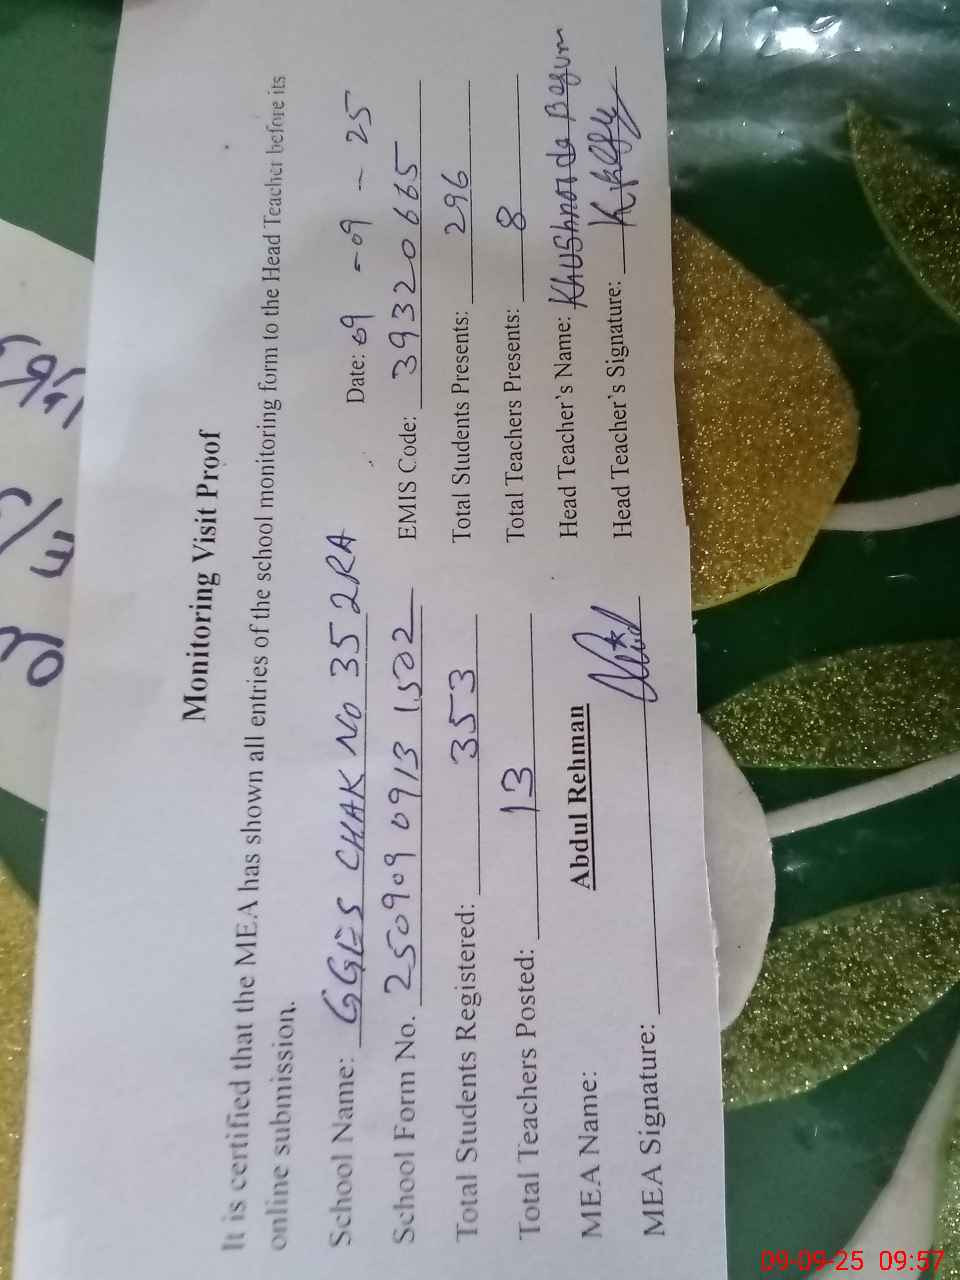 Monitoring Visit Proof
It is certified that the MEA has shown all entries of the school monitoring form to the Head Teacher before its
online submission.
School Name: GGES CHAK No 352RA Date: 09-09-25
School Form No. 250909 0913 1502 EMIS Code: 39320665
Total Students Registered: 353 Total Students Presents: 296
Total Teachers Posted: 13 Total Teachers Presents: 8
MEA Name: Abdul Rehman Head Teacher's Name: Khushnoda Begum
MEA Signature: Head Teacher's Signature:
09-09-25 09:57